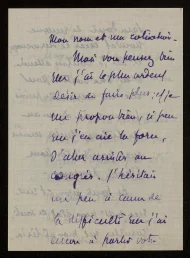 mon nom et ma cotisation.
Mais vous pensez bien
que j'ai le plus ardent
désir de faire plus, et je
me propose bien, si peu
que j'en aie la force,
d'aller assister au
congrès. J'hésitais
un peu à cause de
la difficulté que j'ai
encore à parler